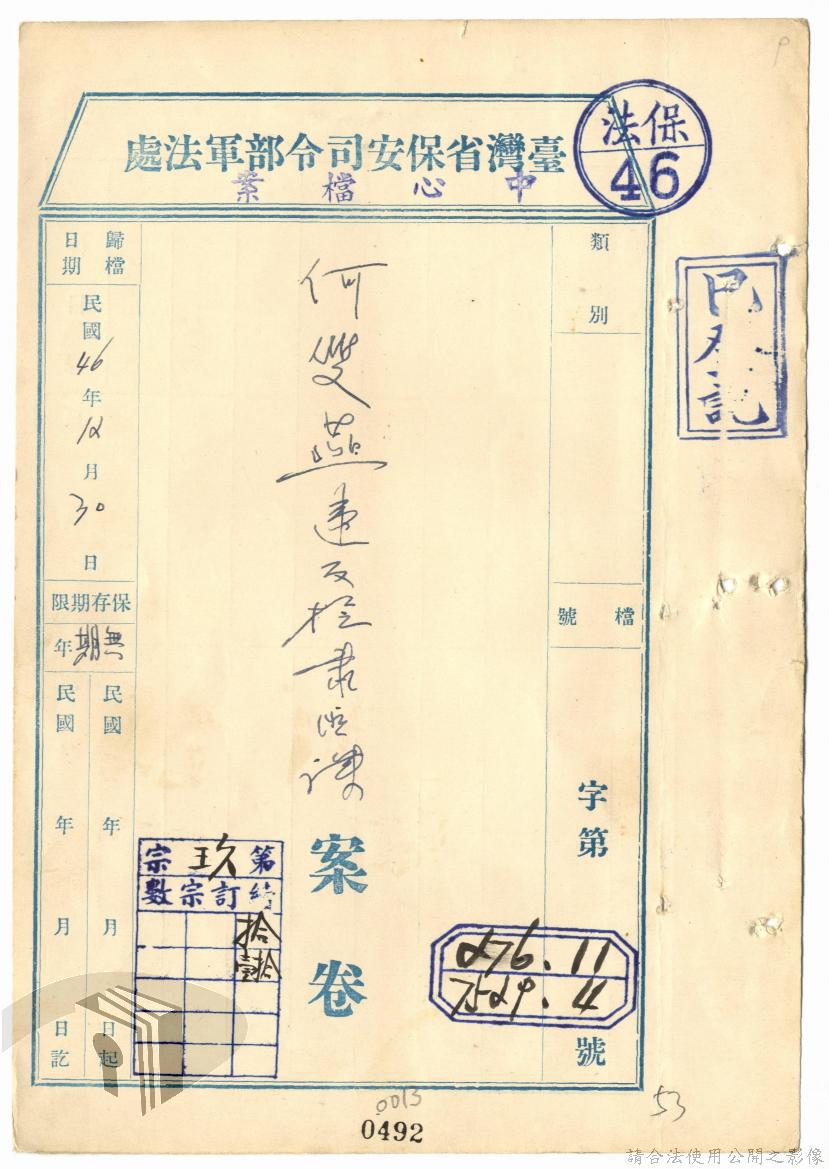 臺灣省保安司令部軍法處
中心檔案
保法
46
已登記
類別
檔號
字第
276.11
7529.4
號
何雙燕違反檢肅匪諜
案卷
第玖宗
續訂宗數
拾
拾壹
歸檔日期
民國46年12月30日
保存期限
無期年
民國 年 月 日起
民國 年 月 日訖
0013
0492
53
請合法使用公開之影像